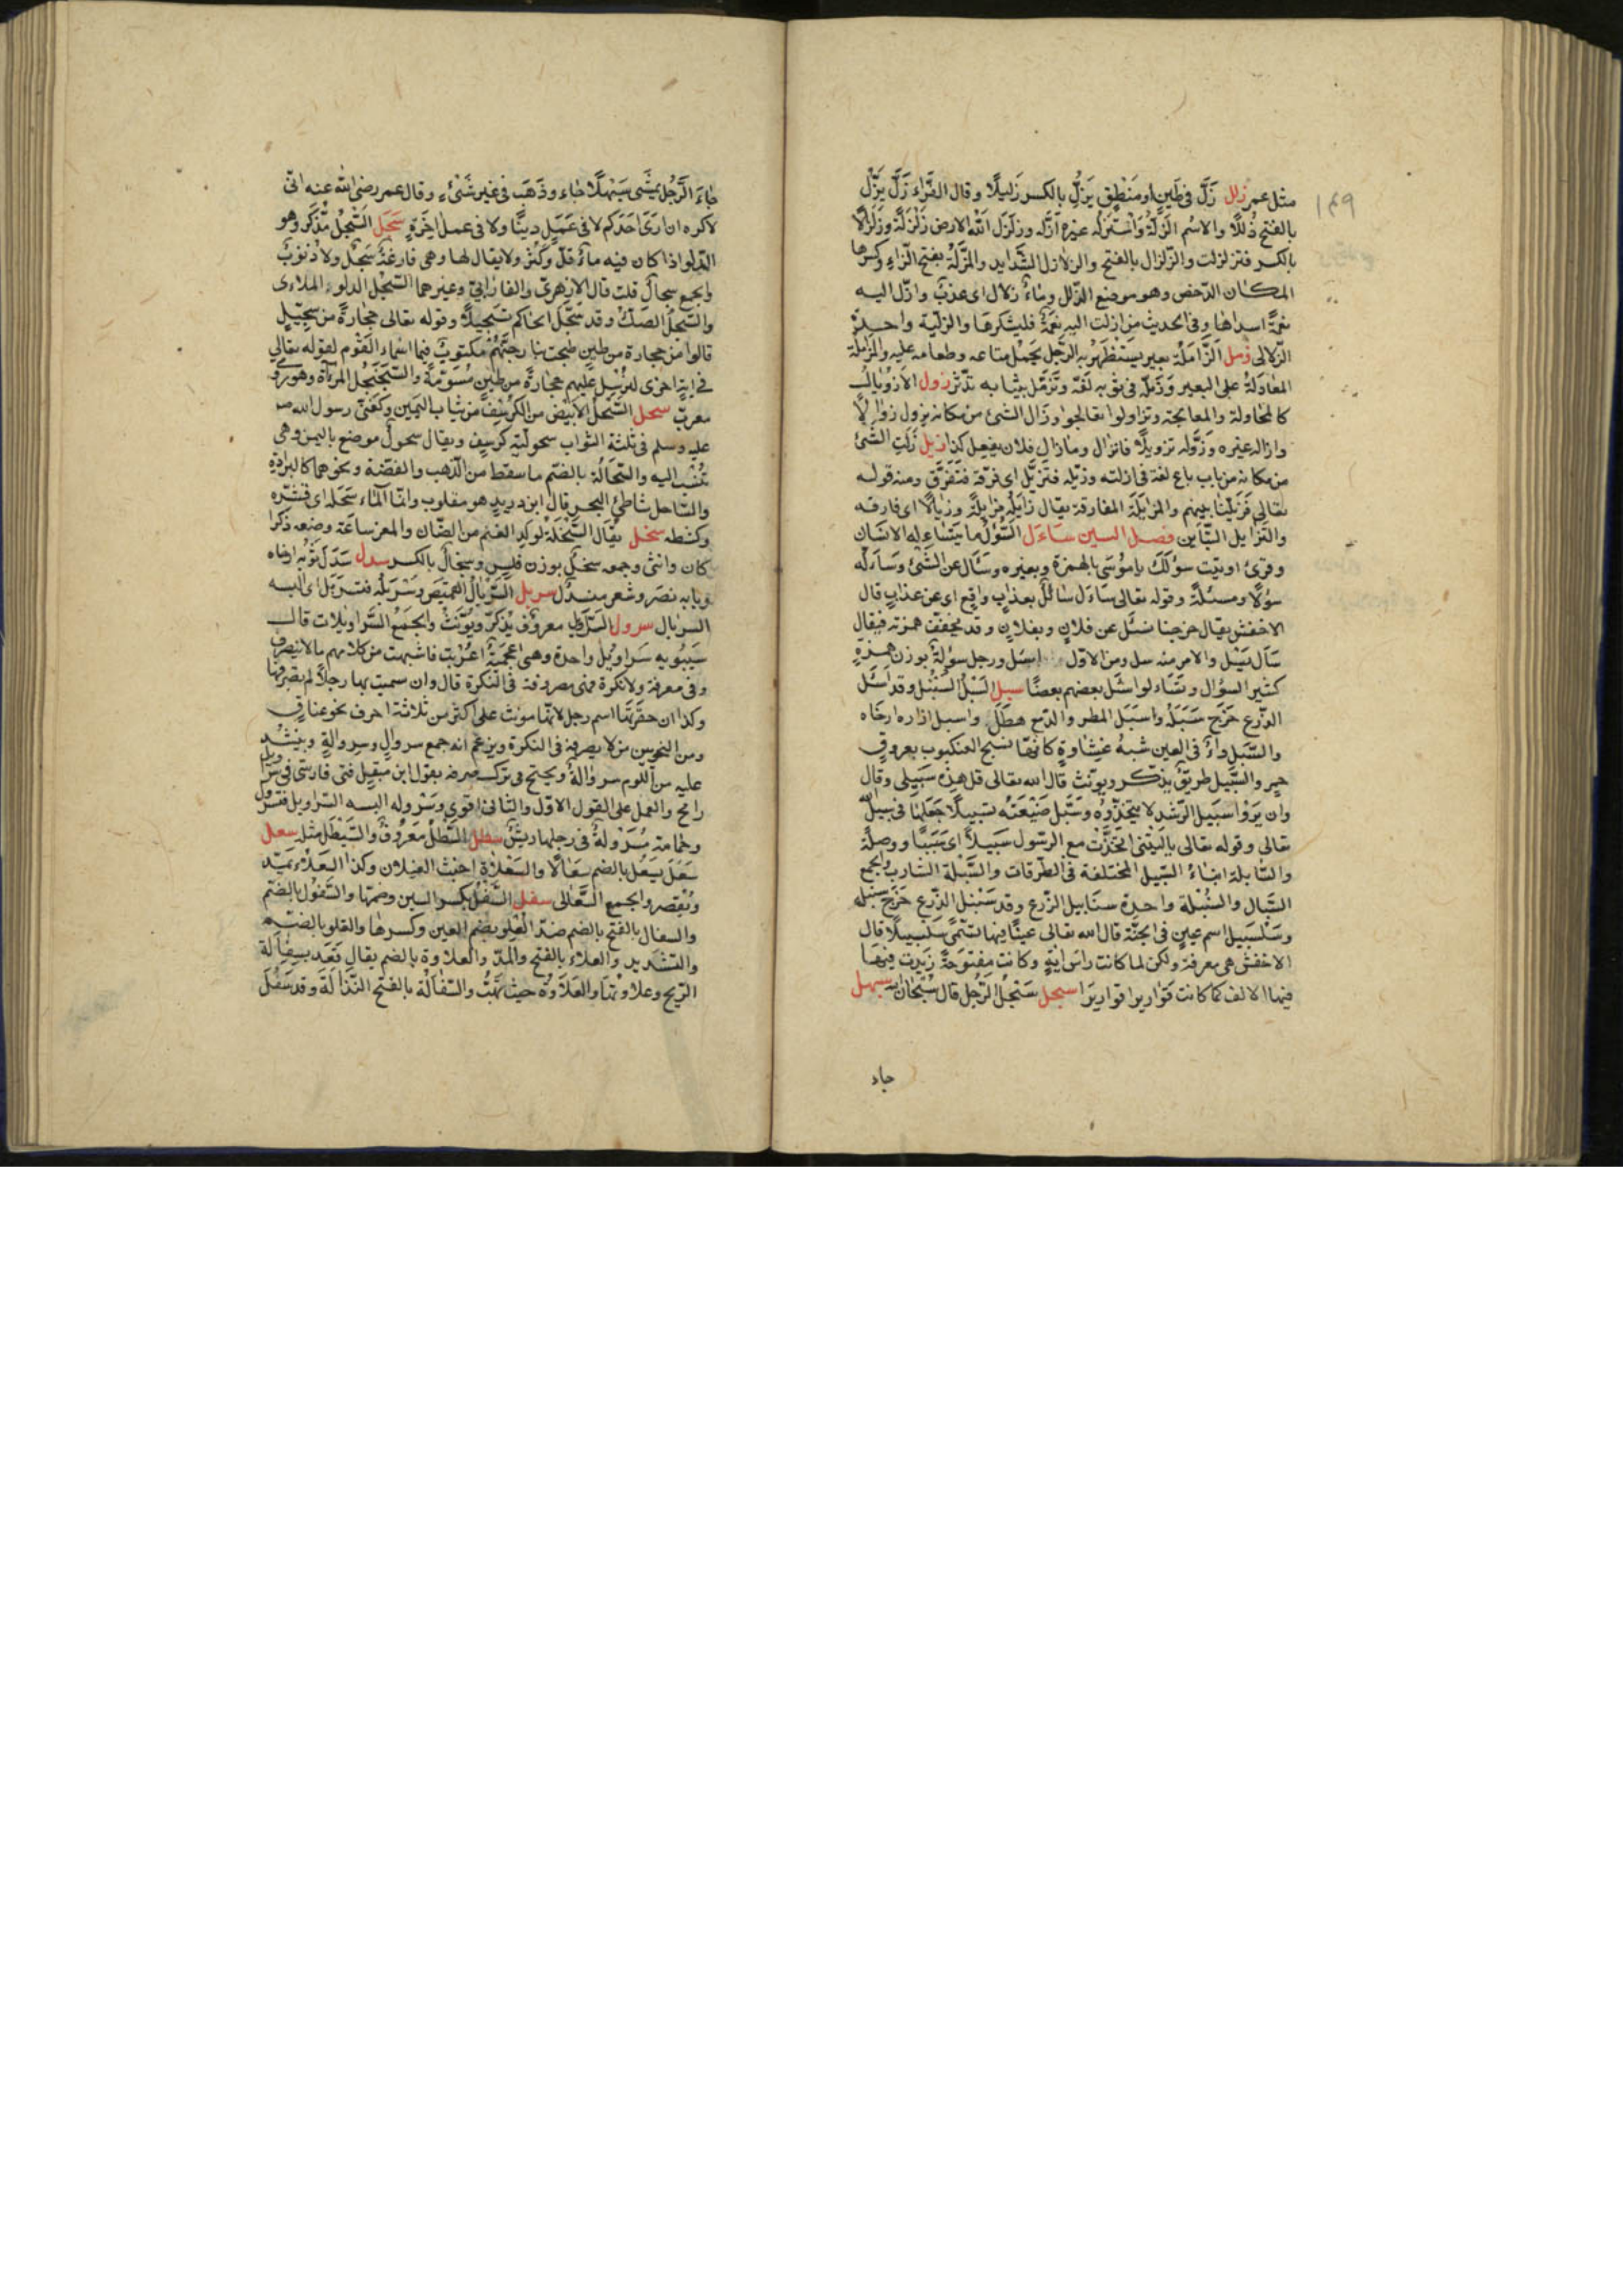 ١٤٩
مثل عمر زلل زَلَّ فى طين او مَنْطِق يَزِلُّ بالكسر زَليلًا وقال الفَرَّاء زَلَّ يَزَلّ
بالفتح زَلَلًا والاسْم الزَلَّةُ وَاسْتَزَلَّه غيره اَزَلَّه وزَلْزَل الله الارض زَلْزَلَةً وزِلْزَالًا
بالكسر فتزلزلت والزَّلزال بالفتح والزلازل الشَّدايد والمَزَلَّة بفتح الزاء وكسرها
المكان الدحض وهو موضع الزلل وماءٌ زلال اى عذبٌ وازلّ اليه
نعمةً اسداها وفى الحديث من ازلت اليه نعمةٌ فليشكرها والزلّية واحدة
الزلالى زمل الزَّامَلَة بعير يَسْتَظْهِرُ به الرَّجل يحمل متاعه وطعامه عليه والمزاملة
المعادَلة على البعير وَزَمَّلَه فى ثوبه لَفَّه وتَزَمَّل بثيابه تدثر زول
كالمحاولة والمعالجة وتزاولوا تعالجوا وزال الشئ من مكانه يزول زَوالًا
وازاله غيره وزَوَّله تزويلًا فانزال ومازال فلان يفعل كذا زيل زِلْتُ الشئ
من مكانه من باب باع لغة فى ازلته وزيّله فتزيّل اى فرّقه فتفرّق ومنه قوله
تعالى فَزَيَّلْنا بينهم والمزايلة المفارقة يقال زايله مزايلةً وزيالًا اى فارقه
والتزايل التَّباين فصل السين ساءَل السُّؤلُ ما يتساءله الانسان
وقرئ اوتيت سؤلَكَ يا مُوسَى بالهمزة وبغيره وسَأَل عن الشئ وسَأله
سُؤلًا ومسئلةً وقوله تعالى سَاءَل سائلٌ بعذابٍ واقع اى عن عذابٍ قال
الاخفش يقال خرجنا نسئل عن فلانٍ وبفلانٍ وقد تخفف همزته فيقال
سَال يَسَل والامر منه سل ومن الاوّل اسئل ورجل سُؤَلةٌ بوزن همزةٍ
كثير السؤال وتَسَاءلوا سَئَل بعضهم بعضًا سبل السَّبَلُ السُّنْبُل وقد اَسْبَل
الزّرع خَرَج سَبَلُهُ واسْبَل المطر والدّمع هطَلَ واسبل ازاره ارخاه
والسَّبَل داءٌ فى العين شبهُ غشاوةٍ كانها نسج العنكبوت بعروقٍ
حمر والسَّبيل طريقٌ يذكّر ويؤنّث قال الله تعالى قل هذه سَبيلى وقال
وان يَرَوْا سَبيل الرُّشد لا يتخذوه وسَبَّل ضَيْعَتَه تسبيلًا جَعَلها فى سبيل الله
تعالى وقوله تعالى ياليتنى اتخَذْت مع الرسول سَبيلًا اى سَبَبًا ووصلةً
والسّابلة ابناءُ السّبيل المختلفة فى الطّرقات والسَّبَلة الشارب والجمع
السَّبال والسُّنْبلة واحدة سنَابيل الزّرع وقد سَنْبل الزَّرع خَرَج سنبله
وسَلْسَبيل اسم عينٍ فى الجنّة قال الله تعالى عينًا فيها تسمّى سَلْسَبيلًا قال
الاخفش هى معرفة ولكن لما كانت راسَ ايَةٍ وكانت مفتوحةً زيدت فيها
فيها الالف كما كانت قَوَاريرا قواريرَا سبحل سَبْحَلَ الرّجُل قال سُبْحان الله سبهل
جاء
جاءَ الرَّجُل يمشى سَبَهْلَلًا جاء وذَهَبَ فى غير شَىْءٍ وقال عمر رضى الله عنه انّى
لاكره ان ارَى احَدَكم لا فى عَمَلٍ دينًا ولا فى عمل اخَرةٍ سَجَل السَّجْلُ مُذَكَر وهو
الدلو اذا كان فيه ماءٌ قلّ او كَثُر ولا يقال لها وهى فارغةٌ سَجْلٌ ولا ذَنوبٌ
والجمع سجالٌ قلت قال الازهرىّ والفارابىّ وغيرهما السَّجْل الدلو الملاءى
والسِّجِلُّ الصَكّ وقد سَجّلَ الحاكم تسجيلًا وقوله تعالى حجارةً من سجّيلٍ
قالوا من حجارة من طينٍ طبخت بنار جهنّمْ مكتوبٌ فيها اسماء القوم لقوله تعالى
فى ايةٍ اخرى لنرسل عليهم حجارةً من طين مُسَوّمةً والسَّجَنْجَل المرآة وهو رومى
معرّب سحل السَّحلُ الابيض من الكرسف من ثياب اليمين وكفن رسول الله صم
عليه وسلم فى ثلثة اثواب سحوليّة كرسف ويقال سحولٌ موضع باليمن وهى
تُنْسَب اليه والسّحالة بالضّم ما سقط من الذهب والفضة ونحوهما كالبرادة
والسّاحل شاطئ البحر قال ابن دريد هو مقلوب وانّما الماء سَحَله اى قشره
وكشطه سخل يُقال السَّخلة لولد الغنم من الضّان والمعز ساعة وضعه ذكرا
كان وانثى وجمعه سخلٌ بوزن فلسٍ وسخالٌ بالكسر سدل سَدَل ثوبه ارخاه
وبابه نصر وشعر منسدل سربل السّربالُ القميص وسَرْبَلَهُ فتسربل اى البسه
السربال سرول السَّراويل معروفٌ يُذكّر ويُؤَنّثُ والجمْعُ السَّراويلات قال
سيبويه سَراويل واحدة وهى اعْجميةٌ اعْربت فاشبهت من كلامهم مالاينصرف
وفى معرفة ولا نكرة فهى مصروفة فى النكرة قال وان سميت بها رجلًا لم تصرفها
وكذا ان حقّرتها اسم رجل لانها مؤنث على اكثر من ثلاثة احرف نحو عناقٍ
ومن النحوين من لا يصرفه فى النكرة ويزعم انه جمع سروالٍ وسروالةٍ وينشد
عليه من اللوم سروالةٌ ويحتج فى ترك صرفه بقول ابن مقبل فتى فارسىّ فى سراويل
رامح والعمل على القول الاوّل والثانى اقوى وسَرْوله البسه السّراويل فتسرول
وحمامة مُسَرْولةٌ فى رجليها ريش سطل السّطل معروفٌ والسَّيْطَل مثله سعل
سَعَل يَسْعُل بالضم سُعَالًا والسِّعْلاة اخبث الغيلان وكذا السِّعْلاءُ يمدّ
ويُقصر والجمع السَّعَالى سفل السّفْل بكسر السين وضمّها والسُّفول بالضّم
والسفال بالفتح بالضم ضدّ العُلو بضم العين وكسرها والعلو بالضّم
والتّشديد والعلاء بالفتح والمدّ والعلاوة بالضم يقال قَعَد بسفالة
الرّيح وعلاوتها والعَلاوَة حيث تَهُبُّ والسَّفالَة بالفتح النَّذَالَة وقد سَفُلَ